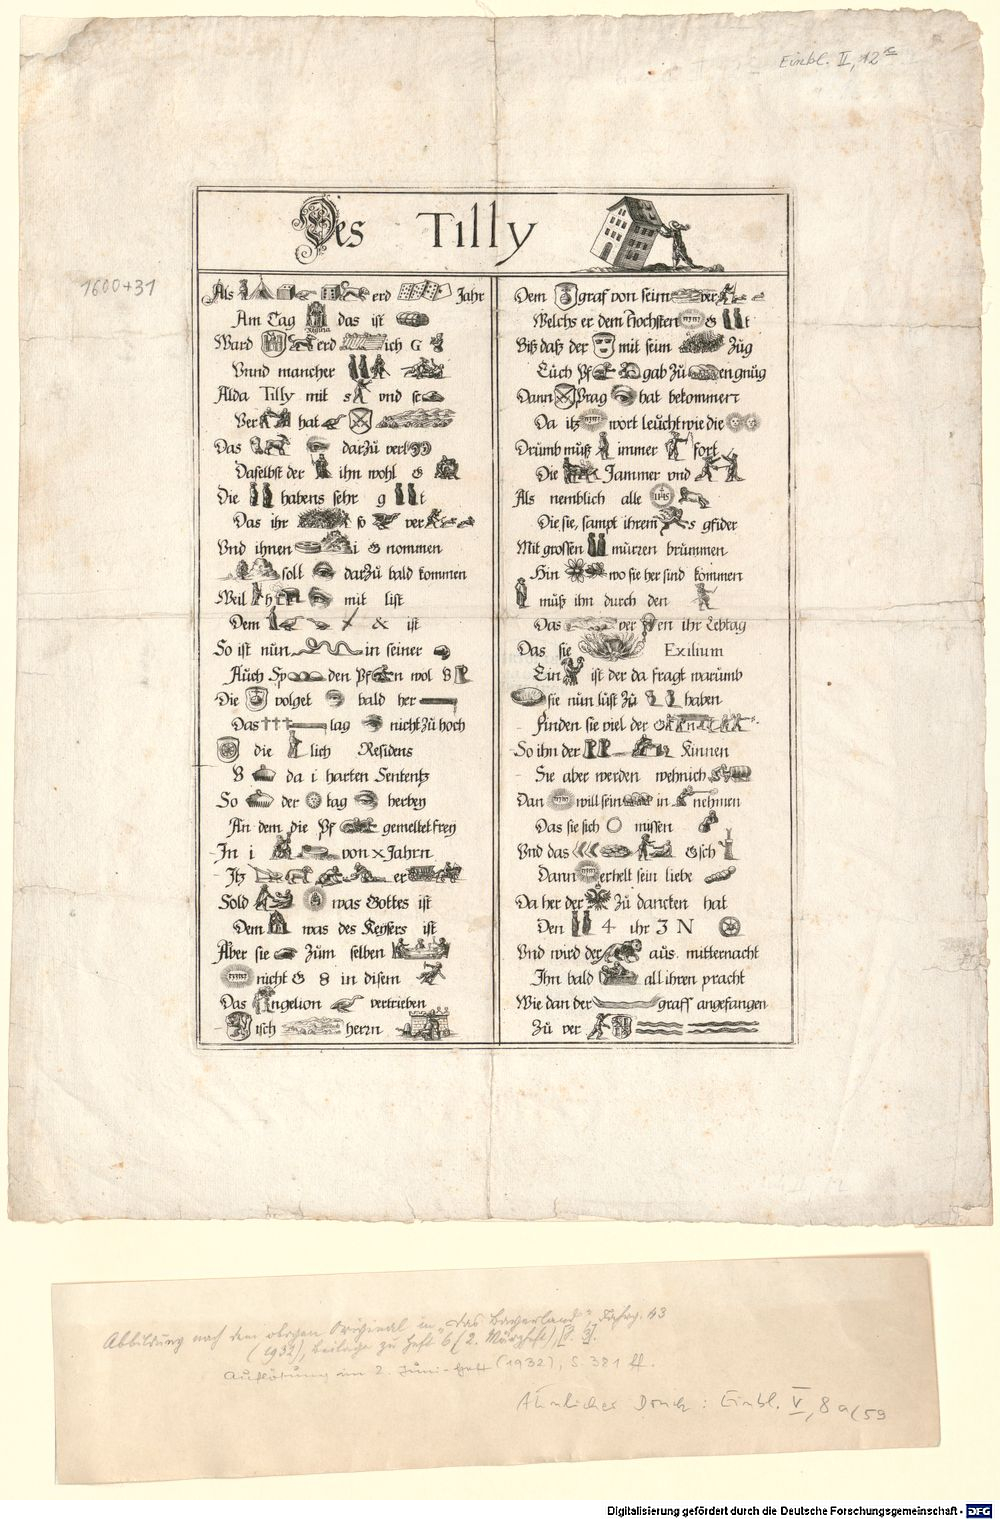 Einbl. II, 12
Des Tilly
1600+31
Als erd Jahr
Am Tag Regina das ist
Ward erd ich G
Vnnd mancher
Alda Tilly mit s vnd se
Ver hat
Das darzu verl
Daselbst der ihn wohl G
Die habens sehr g t
Das ihr so ver
Vnd ihnen i G nommen
soll darzu bald kommen
Weil h mit list
Dem & ist
So ist nun in seiner
Auch Sp den Pf n wol B
Die volget bald her
Das lag nicht zu hoch
die lich Residens
B da i harten Sententz
So der tag herbey
An dem die Pf gemeltet frey
In i von x Jahrn
Itz er
Sold was Gottes ist
Dem was des Keysers ist
Aber sie zum selben
nicht G 8 in disem
Das ngelion vertrieben
isch herrn
Dem graf von seim ver
Welchs er dem Hochsten G t
Biß daß der mit seim Zug
Euch Pf gab zu en gnug
Dann Prag hat bekommen
Da itz wort leucht wie die
Drumb muß immer fort
Die Jammer vnd
Als nemblich alle IHS
Die sie, sampt ihrem s gfider
Mit grossen murren brummen
Hin wo sie her sind kommen
muß ihn durch den
Das ver en ihr Lebtag
Das sie Exilium
Ein ist der da fragt warumb
sie nun lust zu haben
Finden sie viel der G
So ihn der Kinnen
Sie aber werden wehnich
Dan will sein in nehmen
Das sie sich mussen
Vnd das Gsch
Dann erhelt sein liebe
Da her der zu dancken hat
Den 4 ihr 3 N
Vnd wird der aus mitternacht
Ihn bald all ihren pracht
Wie dan der graff angefangen
Zu ver
Abbildung nach dem obigen Original in "Das Bayerland", Jahrg. 43
(1932), Beilage zu Heft 6 (2. Märzheft), S. 3.
Auflösung im 2. Juni-Heft (1932), S. 381 ff.
Ähnlicher Druck: Einbl. V, 8 a (59
Digitalisierung gefördert durch die Deutsche Forschungsgemeinschaft - DFG